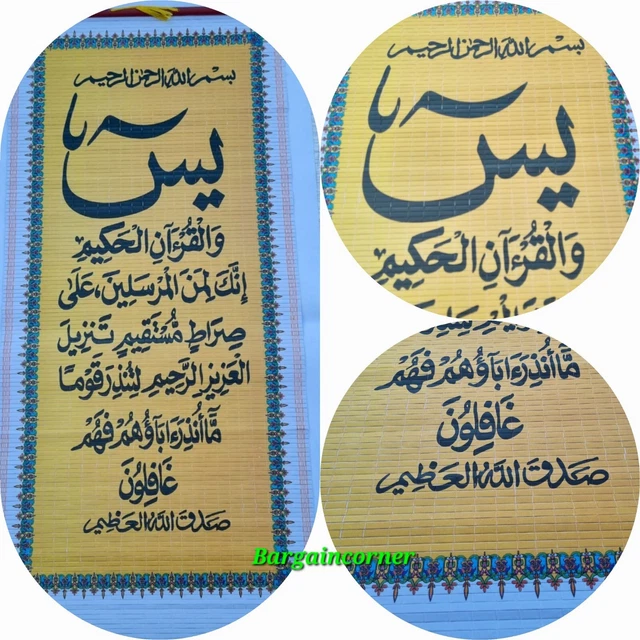 بسم الله الرحمن الرحيم
يس
وَالْقُرْءَانِ الْحَكِيمِ
إِنَّكَ لَمِنَ الْمُرْسَلِينَ، عَلَىٰ
صِرَاطٍ مُّسْتَقِيمٍ تَنزِيلَ
الْعَزِيزِ الرَّحِيمِ لِتُنذِرَ قَوْمًا
مَّا أُنذِرَ ءَابَآؤُهُمْ فَهُمْ
غَافِلُونَ
صَدَقَ اللَّهُ الْعَظِيمُ
بسم الله الرحمن الرحيم
يس
وَالْقُرْءَانِ الْحَكِيمِ
مَّا أُنذِرَ ءَابَآؤُهُمْ فَهُمْ
غَافِلُونَ
صَدَقَ اللَّهُ الْعَظِيمُ
Bargaincorner